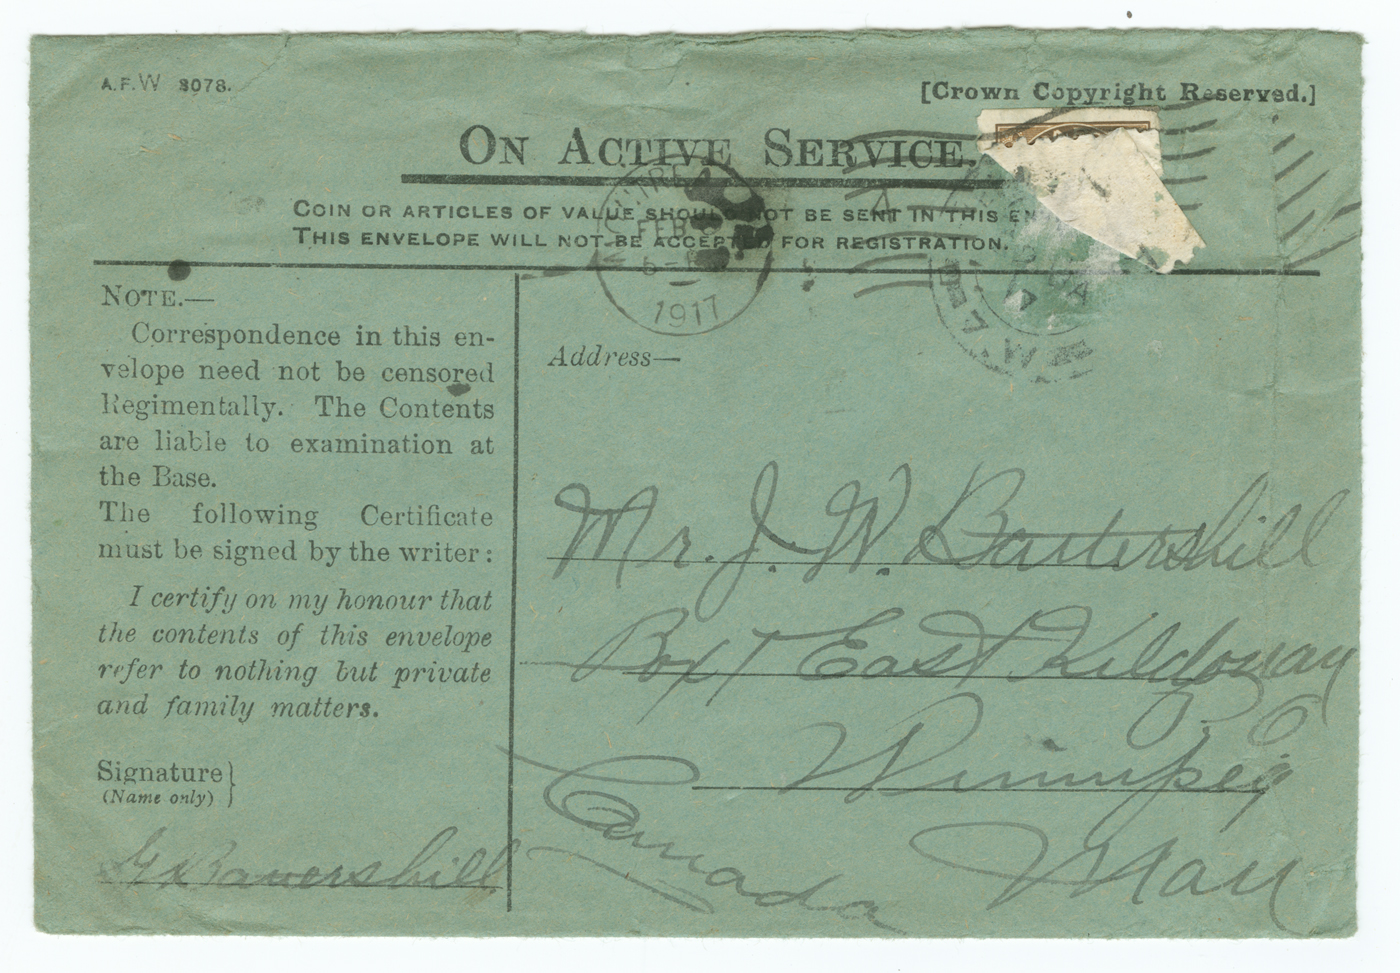 A.F.W 3078.
[Crown Copyright Reserved.]
ON ACTIVE SERVICE.
COIN OR ARTICLES OF VALUE SHOULD NOT BE SENT IN THIS EN
THIS ENVELOPE WILL NOT BE ACCEPTED FOR REGISTRATION.
FEB
1917
NOTE.—
Correspondence in this en-
velope need not be censored
Regimentally. The Contents
are liable to examination at
the Base.
The following Certificate
must be signed by the writer:
I certify on my honour that
the contents of this envelope
refer to nothing but private
and family matters.
Signature}
(Name only)
Address—
Mr. J. W. Battershill
Box 1 East Kildonan
Winnipeg
Man
Canada